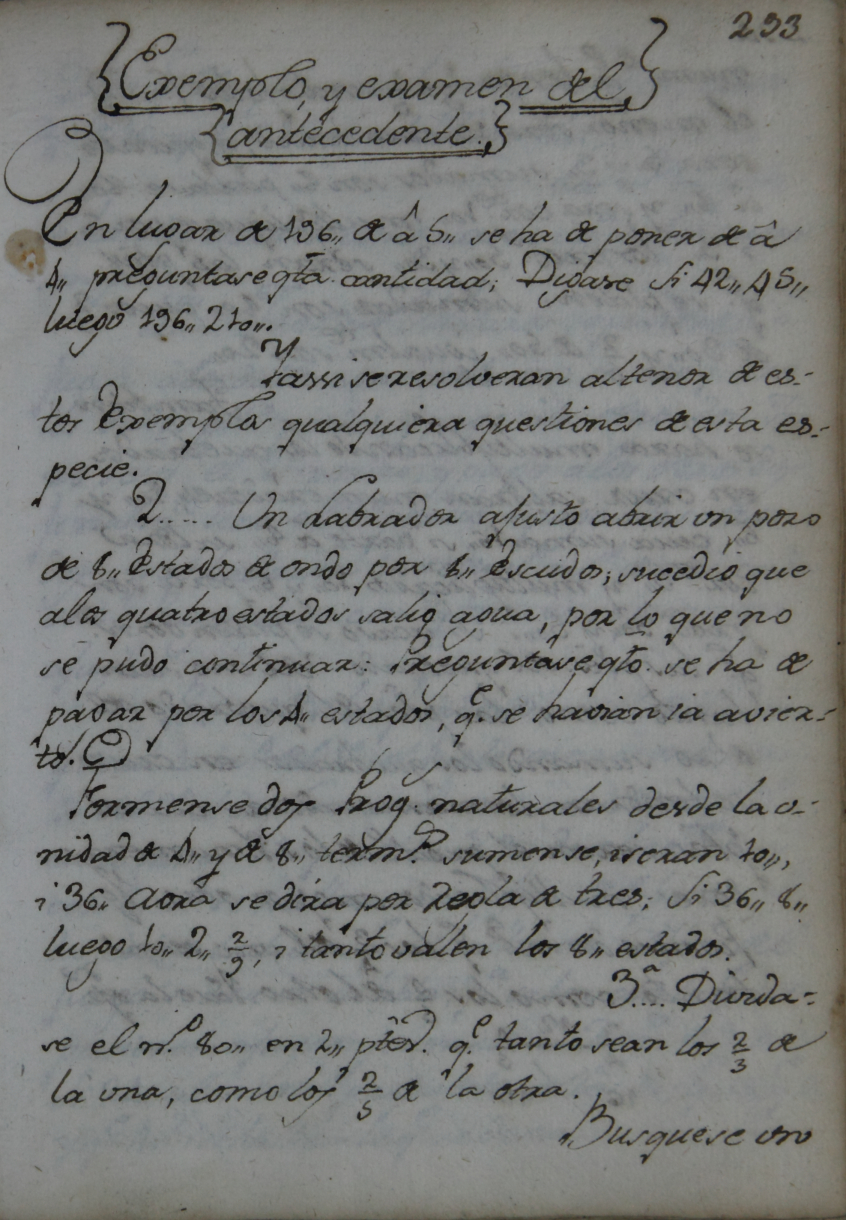 233
{Exemplo, y examen del}
{antecedente.}
En lugar de 196,, de â 5,, se ha de poner de â
4,, preguntase qta cantidad; Digase Si 42,, 45,,
luego 196,, 210,,.
Yassi se resolveran al tenor de es-
tos Exemplos qualquiera questiones de esta es-
pecie.
2..... Un Labrador ajusto abrir un pozo
de 8,, Estados de ondo por 8,, Escudos; sucedio que
alos quatro estados salio agua, por lo que no
se pudo continuar: Preguntase qto. se ha de
pagar por los 4,, estados, qe. se havian ia avier-
to.
Formense dos Prog. naturales desde la v-
nidad de 4,, y de 8,, termos. sumense, i seran 10,,,
i 36,, aora se dira por Regla de tres; Si 36,, 8,,
luego 10,, 2,, 2/9, i tanto valen los 8,, estados.
3ª.... Divida-
se el no. 80,, en 2,, ptes. qe. tanto sean los 2/3 de
la vna, como los 2/5 de la otra.
Busquese vno